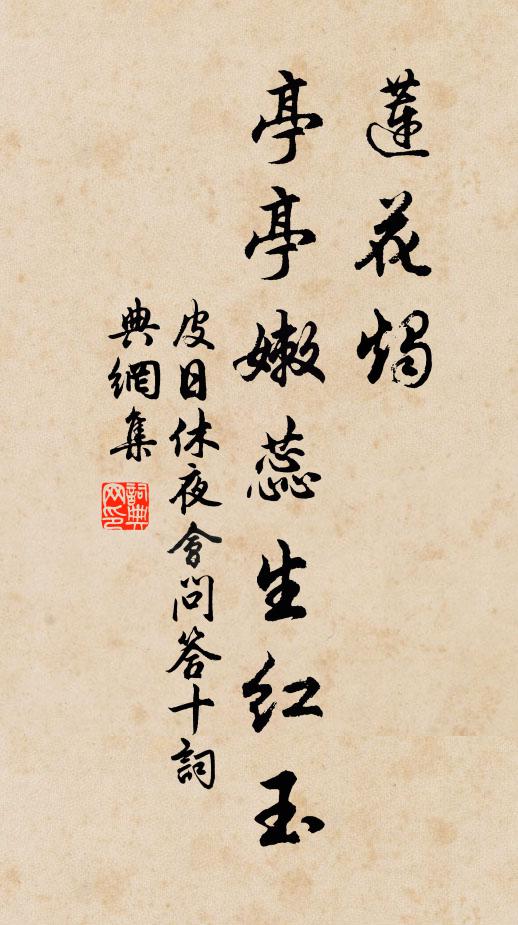 蓮花燭
亭亭嫩蕊生红玉
皮日休夜會問答十詞
典網集
詞典网印